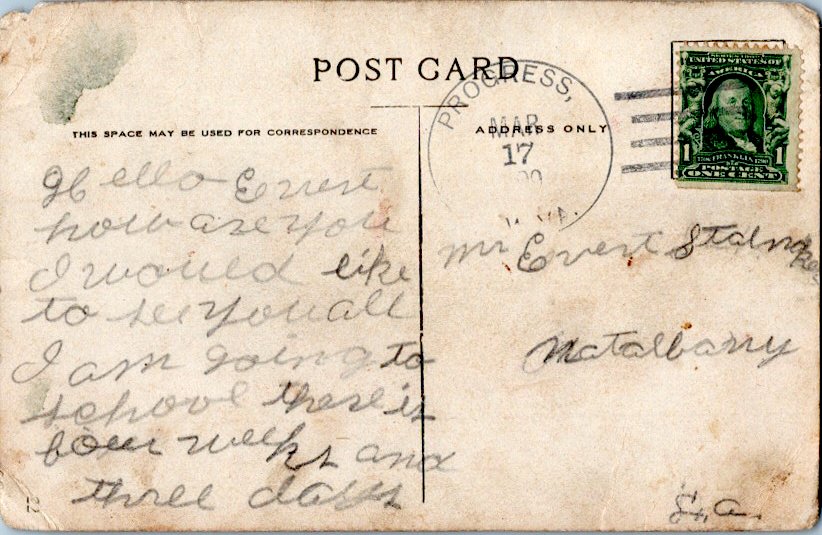 POST CARD
THIS SPACE MAY BE USED FOR CORRESPONDENCE
ADDRESS ONLY
PROGRESS,
MAR
17
W. VA.
SERIES 1902
UNITED STATES OF
AMERICA
1 1706 FRANKLIN 1790 1
POSTAGE
ONE CENT
Hello Evert
how are you
I would like
to see you all
I am going to
school there is
four weeks and
three days
Mr Evert Stalnaker
Natalbany
La.